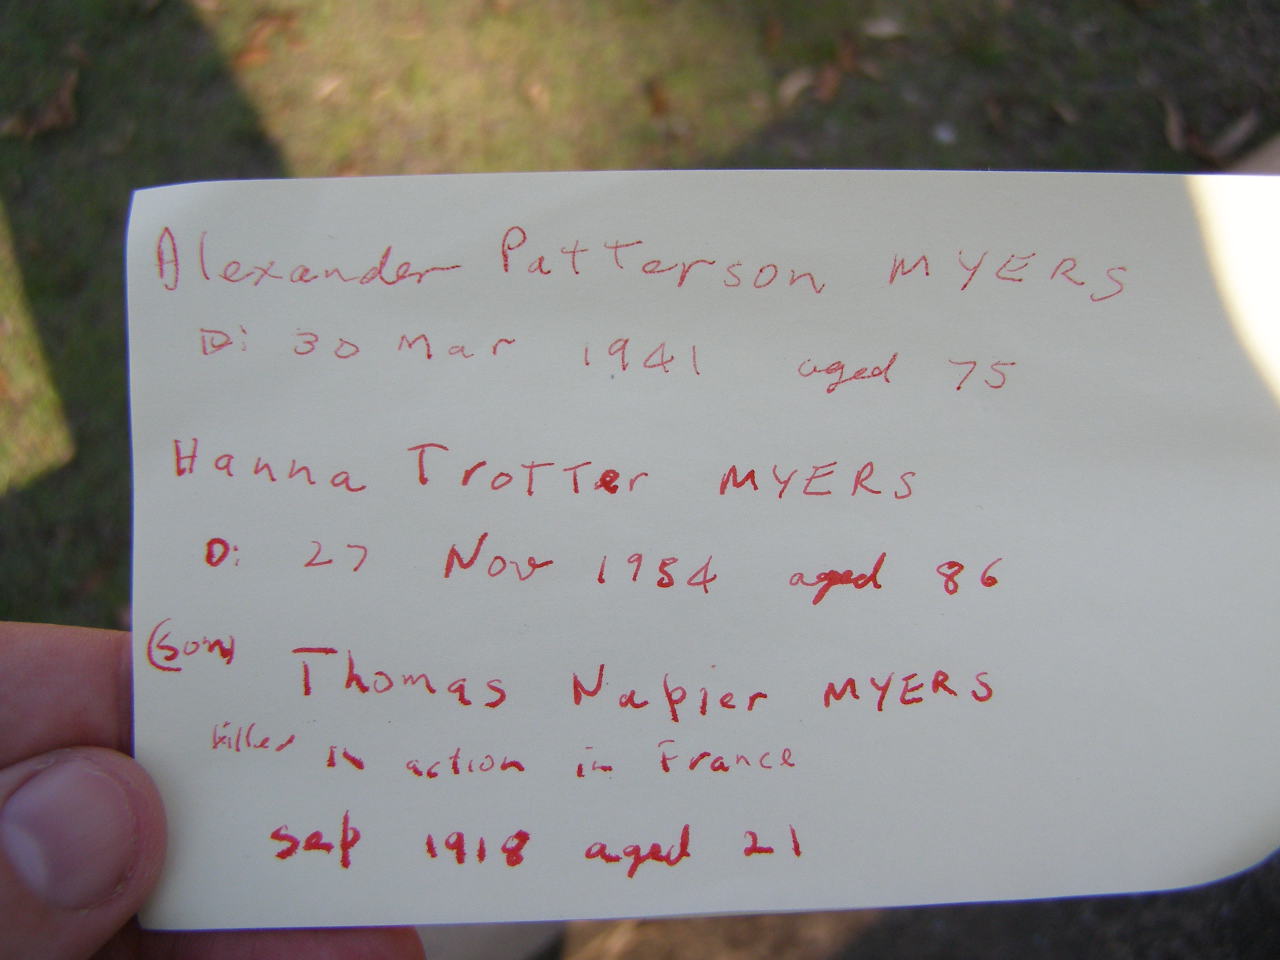 Alexander Patterson MYERS
D: 30 Mar 1941 aged 75
Hanna Trotter MYERS
D: 27 Nov 1954 aged 86
(son) Thomas Napier MYERS
killed in action in France
Sep 1918 aged 21